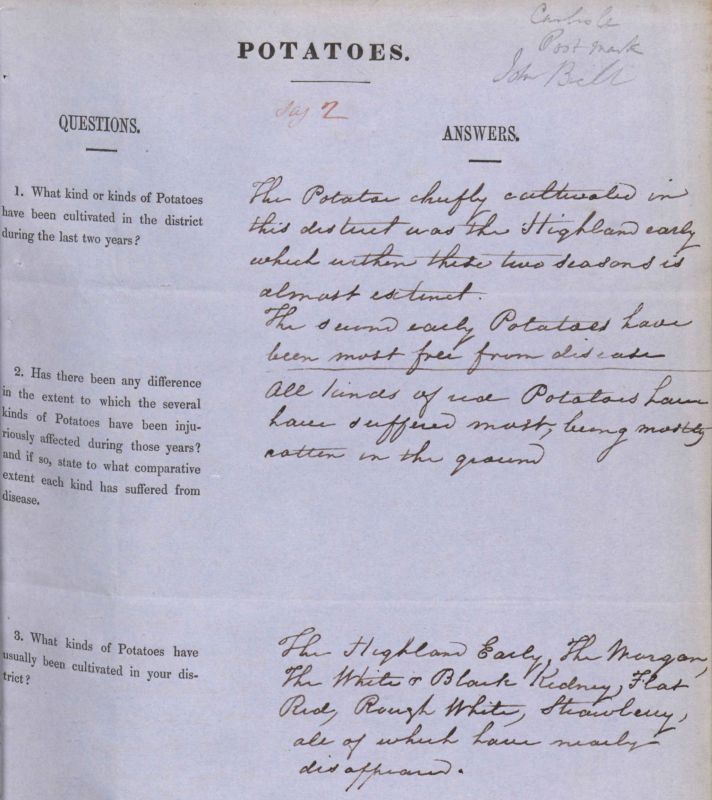 Carlisle
Post mark
John Bell
POTATOES.
2
QUESTIONS.
ANSWERS.
1. What kind or kinds of Potatoes
have been cultivated in the district
during the last two years?
The Potatoe cheifly cultivated in
this district was the Highland early
which within these two seasons is
almost extinct.
The second early Potatoes have
been most free from disease
2. Has there been any difference
in the extent to which the several
kinds of Potatoes have been inju-
riously affected during those years?
and if so, state to what comparative
extent each kind has suffered from
disease.
All kinds of red Potatoes have
have suffered most, being mostly
rotten in the ground
3. What kinds of Potatoes have
usually been cultivated in your dis-
trict?
The Highland Early, The Morgan,
The White & Black Kidney, Flat
Red, Rough White, Strawberry,
all of which have nearly
disappeared.